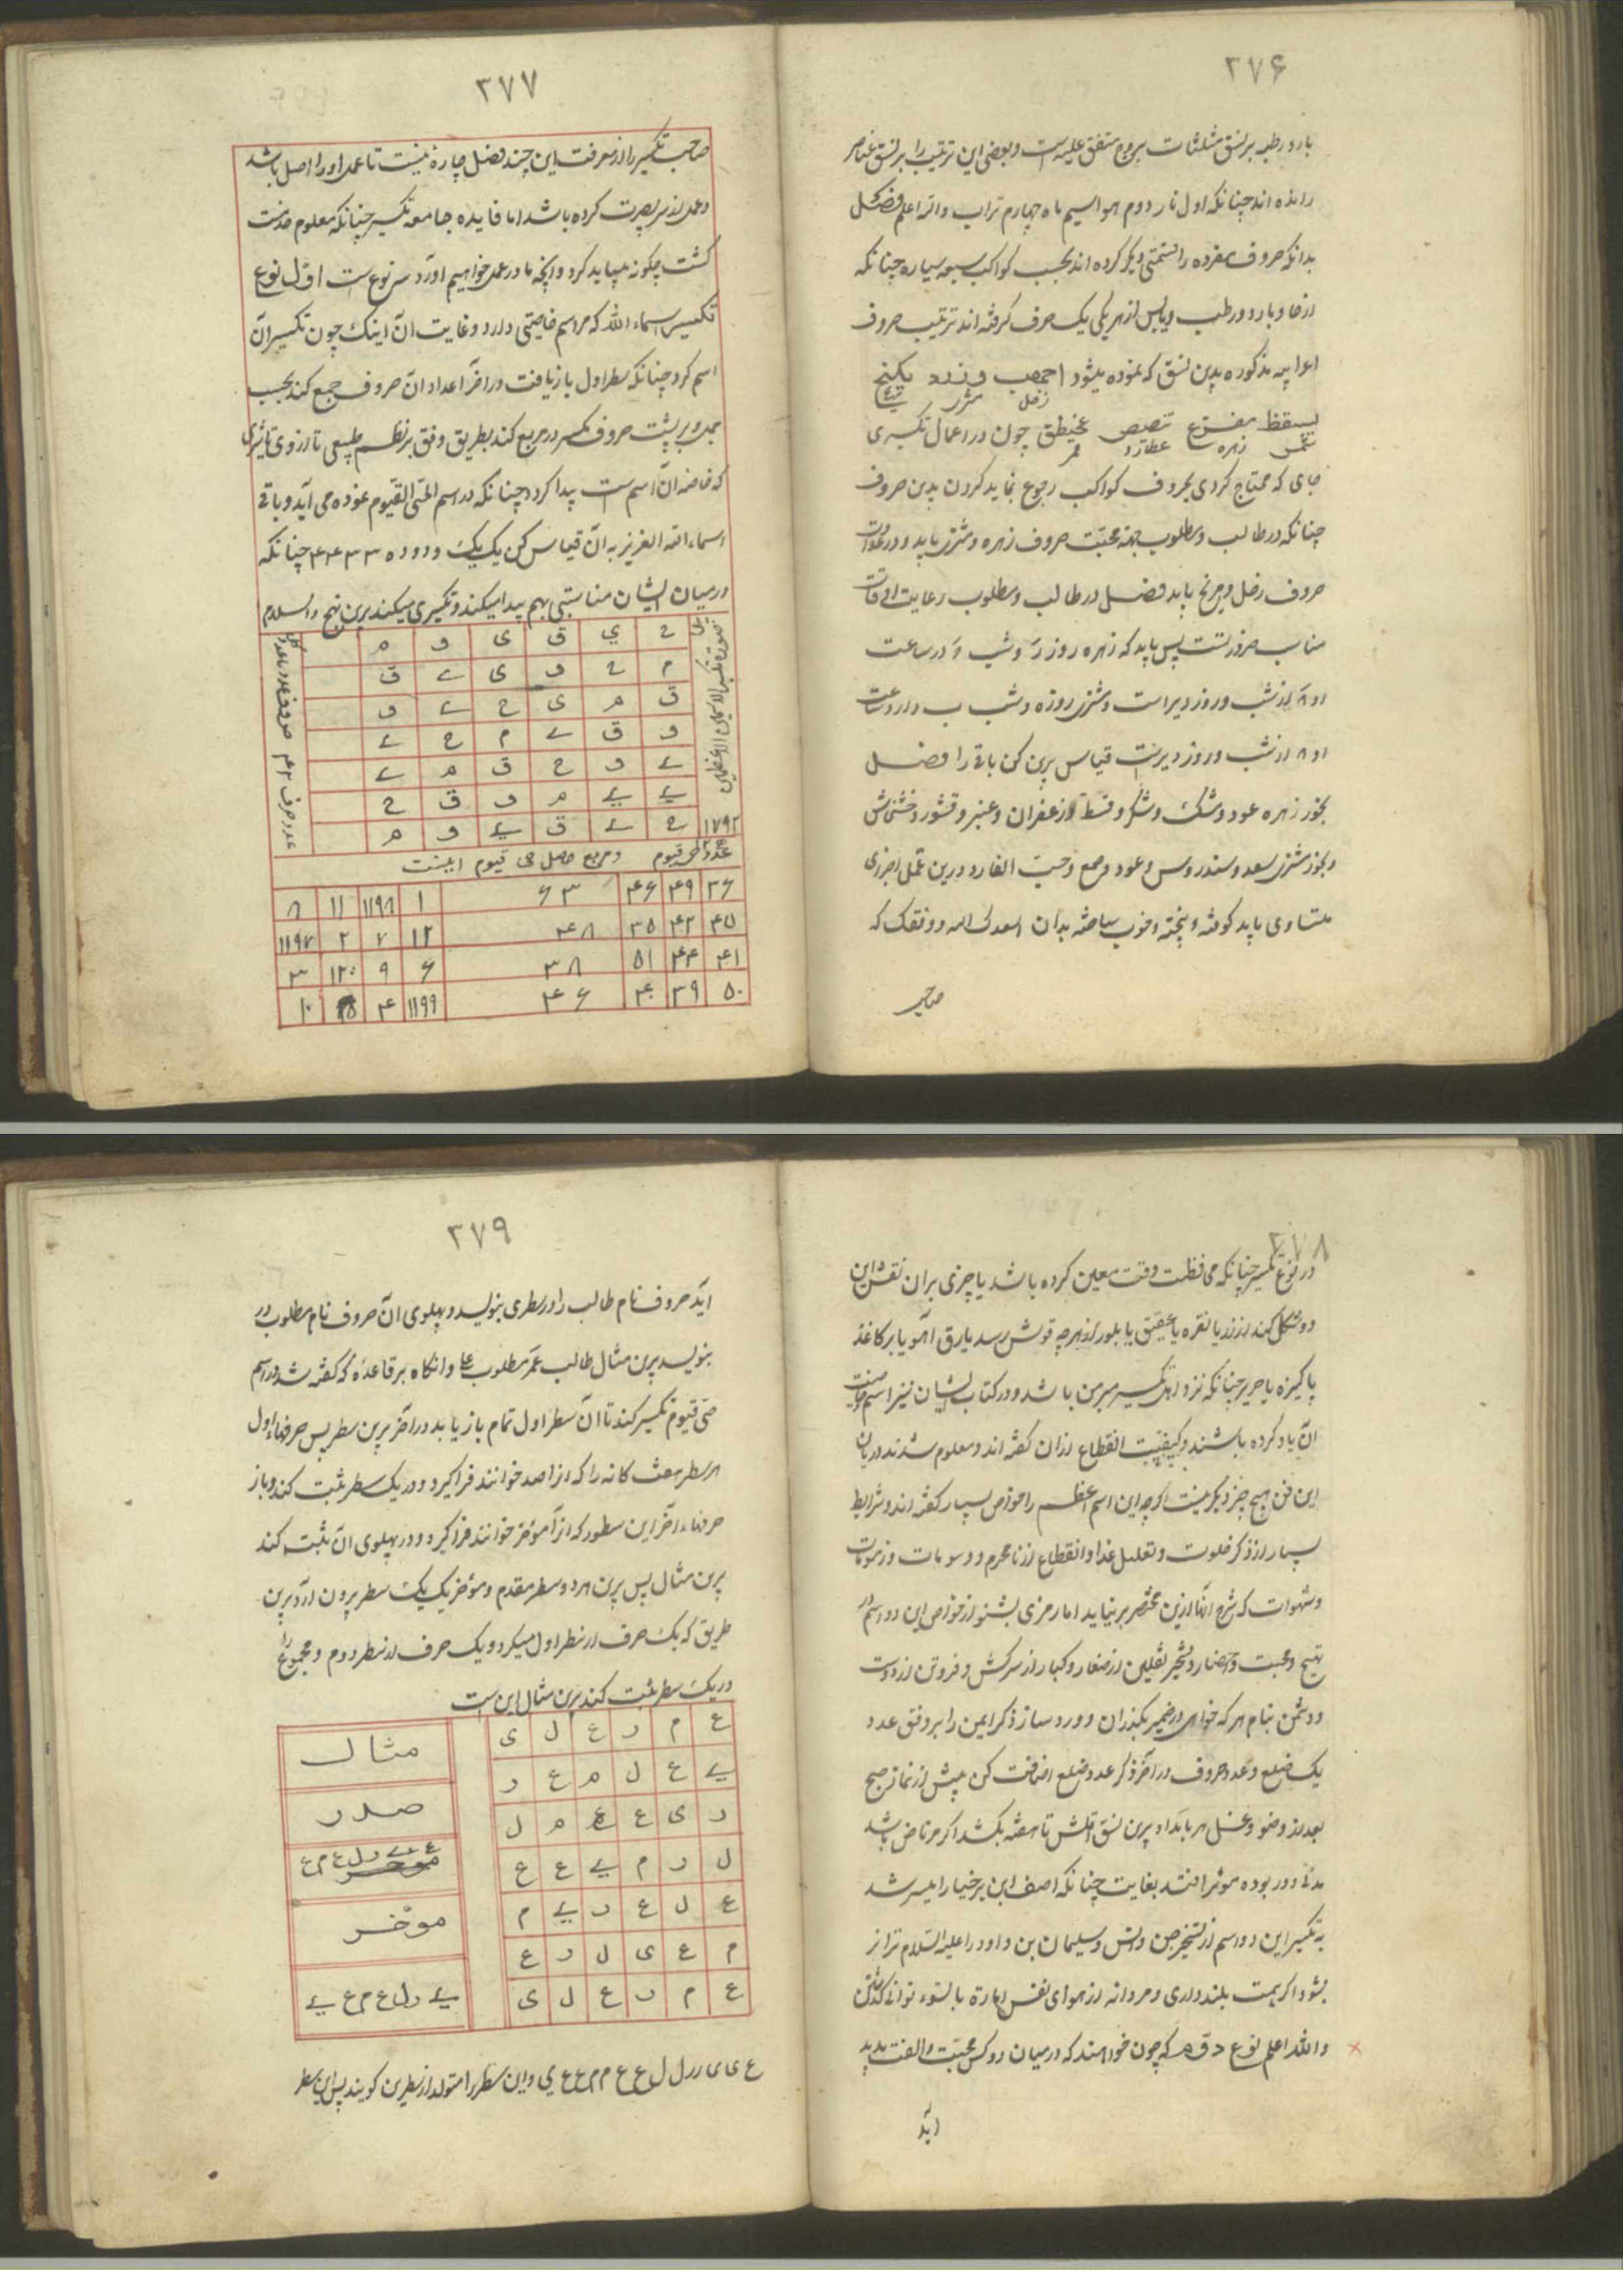 ۳۷۶
بارد و رطبه بر نسق مثلثات بروج متفق علیه است و بعضی این ترتیب را بر نسق عناصر
رانده اند چنانکه اول نار دوم هوا سیم ماء چهارم تراب والله اعلم فصل
بدانکه حروف مفرده را قسمتی دیگر کرده اند بحسب کواکب سبعه سیاره چنانکه
از حار و بارد و رطب و یابس از هر یکی یک حرف گرفته اند ترتیب حروف
مذکوره بدین نسق که نموده میشود اجهب وزدد یکنج
زحل مشتری مریخ
بسقظ مفزع تنصص غخیطق چون در اعمال تکسیری
شمس زهره عطارد قمر
جای که محتاج کردی بحروف کواکب رجوع نماید کردن بدین حروف
چنانکه در طالب و مطلوب جهة محبت حروف زهره و مشتری باید و در عداوات
حروف زحل و مریخ باید فصل در طالب و مطلوب رعایت اوقات
مناسب ضرورتست پس باید که زهره روز و شب در ساعت
او ۸ از شب و روز دیر است و مشتری روز ه و شب ب و از ساعت
او ۸ از شب و روز دیرست قیاس برین کن باقی را فصل
بخور زهره عود و مشک و شکر و قسط و زعفران و عنبر و قشور خشخاش
و بخور مشتری سعد و سندروس و عود و صمغ و حب الغار و درین عمل اجزای
متساوی باید کوفته و پخته و خوب ساخته بدان اسعدک الله و وفقک که
صاحب
۳۷۷
صاحب تکسیر را از معرفت این چند فصل چاره نیست تا عمل او را اصل باشد
و عمل از سر بصیرت کرده باشد اما فایده جامعه تکسیر چنانکه معلوم
کشت چکونه میباید کرد و آنچه ما در عمل خواهیم آورد سه نوع ست اول نوع
تکسیر اسماء الله که هر اسم خاصیتی دارد و غایت آن اینک چون تکسیر آن
اسم کرد چنانکه سطر اول باز یافت در آخر اعداد آن حروف جمع کند بحسب
جمل و بر پشت حروف مکسر در مربع کند بطریق وفق بر نظم طبیعی تا از وی تاثیری
که خاصه آن اسم ست پیدا کردد چنانکه در اسم الحی القیوم نموده می آید و باقی
اسماء الله العزیز به آن قیاس کن یک یک و دو دو ۳۳ ۴۴ چنانکه
در میان ایشان مناسبتی بهم پیدا میکند و تکسیری میکند برین نهج والسلام
ح ي ق ی و م
م ح و ی ے ق
ق م ی ح ے و
و ق ے م ح ے
ے و ح ق م ے
ے ے م و ق ح
ح ے ق ے و م
۱۷۹۲
و مربع حاصل حی قیوم اینست
۳۶ ۴۹ ۴۶ ۶۳ ۱ ۱۱۹۸ ۱۱ ۸
۴۵ ۴۲ ۳۵ ۴۸ ۱۲ ۷ ۲ ۱۱۹۷
۴۱ ۴۴ ۵۱ ۳۸ ۶ ۹ ۱۲۰۰ ۳
۵۰ ۳۹ ۴۰ ۴۶ ۱۱۹۹ ۴ ۵ ۱۰
۳۷۸
در نوع تکسیر چنانکه محافظت وقت معین کرده باشد یا چیزی بران نقش این
دو شکل کند از زر یا نقره یا عقیق یا بلور از هر چه قوتش رسد یا رق آهو یا بر کاغذ
پاکیزه یا حریر چنانکه نزد اهل تکسیر مبرهن باشد و در کتاب ایشان نیز اسم
آن یاد کرده باشند و کیفیت انقطاع ازان کفته اند و معلوم شد در زبان
این فن هیچ چیز دیگر نیست اگرچه این اسم اعظم را خواص بسیار گفته اند و شرایط
بسیار از ذکر خلوت و تقلیل غذا و انقطاع از نامحرم و رسومات و
و شهوات که شرح آنها ازین مختصر بر نیاید اما رمزی بشنو از خواص این دو اسم در
تهیج و محبت و احضار و تسخیر ثقلین از صغار و کبار از سرکش و فروتن از دوست
و دشمن بنام هر که خواهی در ضمیر بکذران و ورد ساز ذکر این را بر وفق عدد
یک ضلع و عدد حروف در آخر ذکر عدد ضلع اضافت کن پیش از نماز صبح
بعد از وضو و غسل هر بامداد برین نسق اقلش تا هفته بکشد اگر مرتاض باشد
مدتی دور بوده مؤثر افتد بغایت چنانکه اصف ابن برخیا را میسر شد
به تکسیر این دو اسم از تسخیر جن و انس و سلیمان بن داود را علیه السلام ترا نیز
بشود اگر همت بلند داری و مردانه از هوای نفس اماره بالسوء توانی گذشتن
والله اعلم نوع دوم که چون خواهند که در میان دو کس محبت و الفت پدید
آید
۳۷۹
آید حروف نام طالب را در سطری بنویسد و پهلوی آن حروف نام مطلوب را
بنویسد برین مثال طالب عمر مطلوب علی و انکاه بر قاعدۀ که گفته شد در اسم
حی قیوم تکسیر کند تا آن سطر اول تمام باز یابد در آخر برین سطر پس حرفهاء اول
هر سطر هفت کانه را که ازا صدر خوانند فرا گیرد و در یک سطر ثبت کند و باز
حرفهاء آخر این سطور که ازا مؤخر خوانند فرا گیرد و در پهلوی آن ثبت کند
برین مثال پس برین هر دو سطر مقدم و مؤخر یک یک سطر بیرون آرد برین
طریق که یک حرف از سطر اول میکرد و یک حرف از سطر دوم و مجموع را
در یک سطر ثبت کند برین مثال این ست
ع م ر ع ل ی
ے ع ل م ع ر
ر ی ع ع م ل
ل ر م ے ع ع
ع ل ع ر ے م
م ع ی ل ر ع
ع م ر ع ل ی
مثال
صدر
ع ے ر ل ع م ع
موخر
ے ر ل ع م ع ے
ع ی ی ر ر ل ل ع ع م م ع ع ي و این سطر را متولد از سطرین کویند پس این سطر